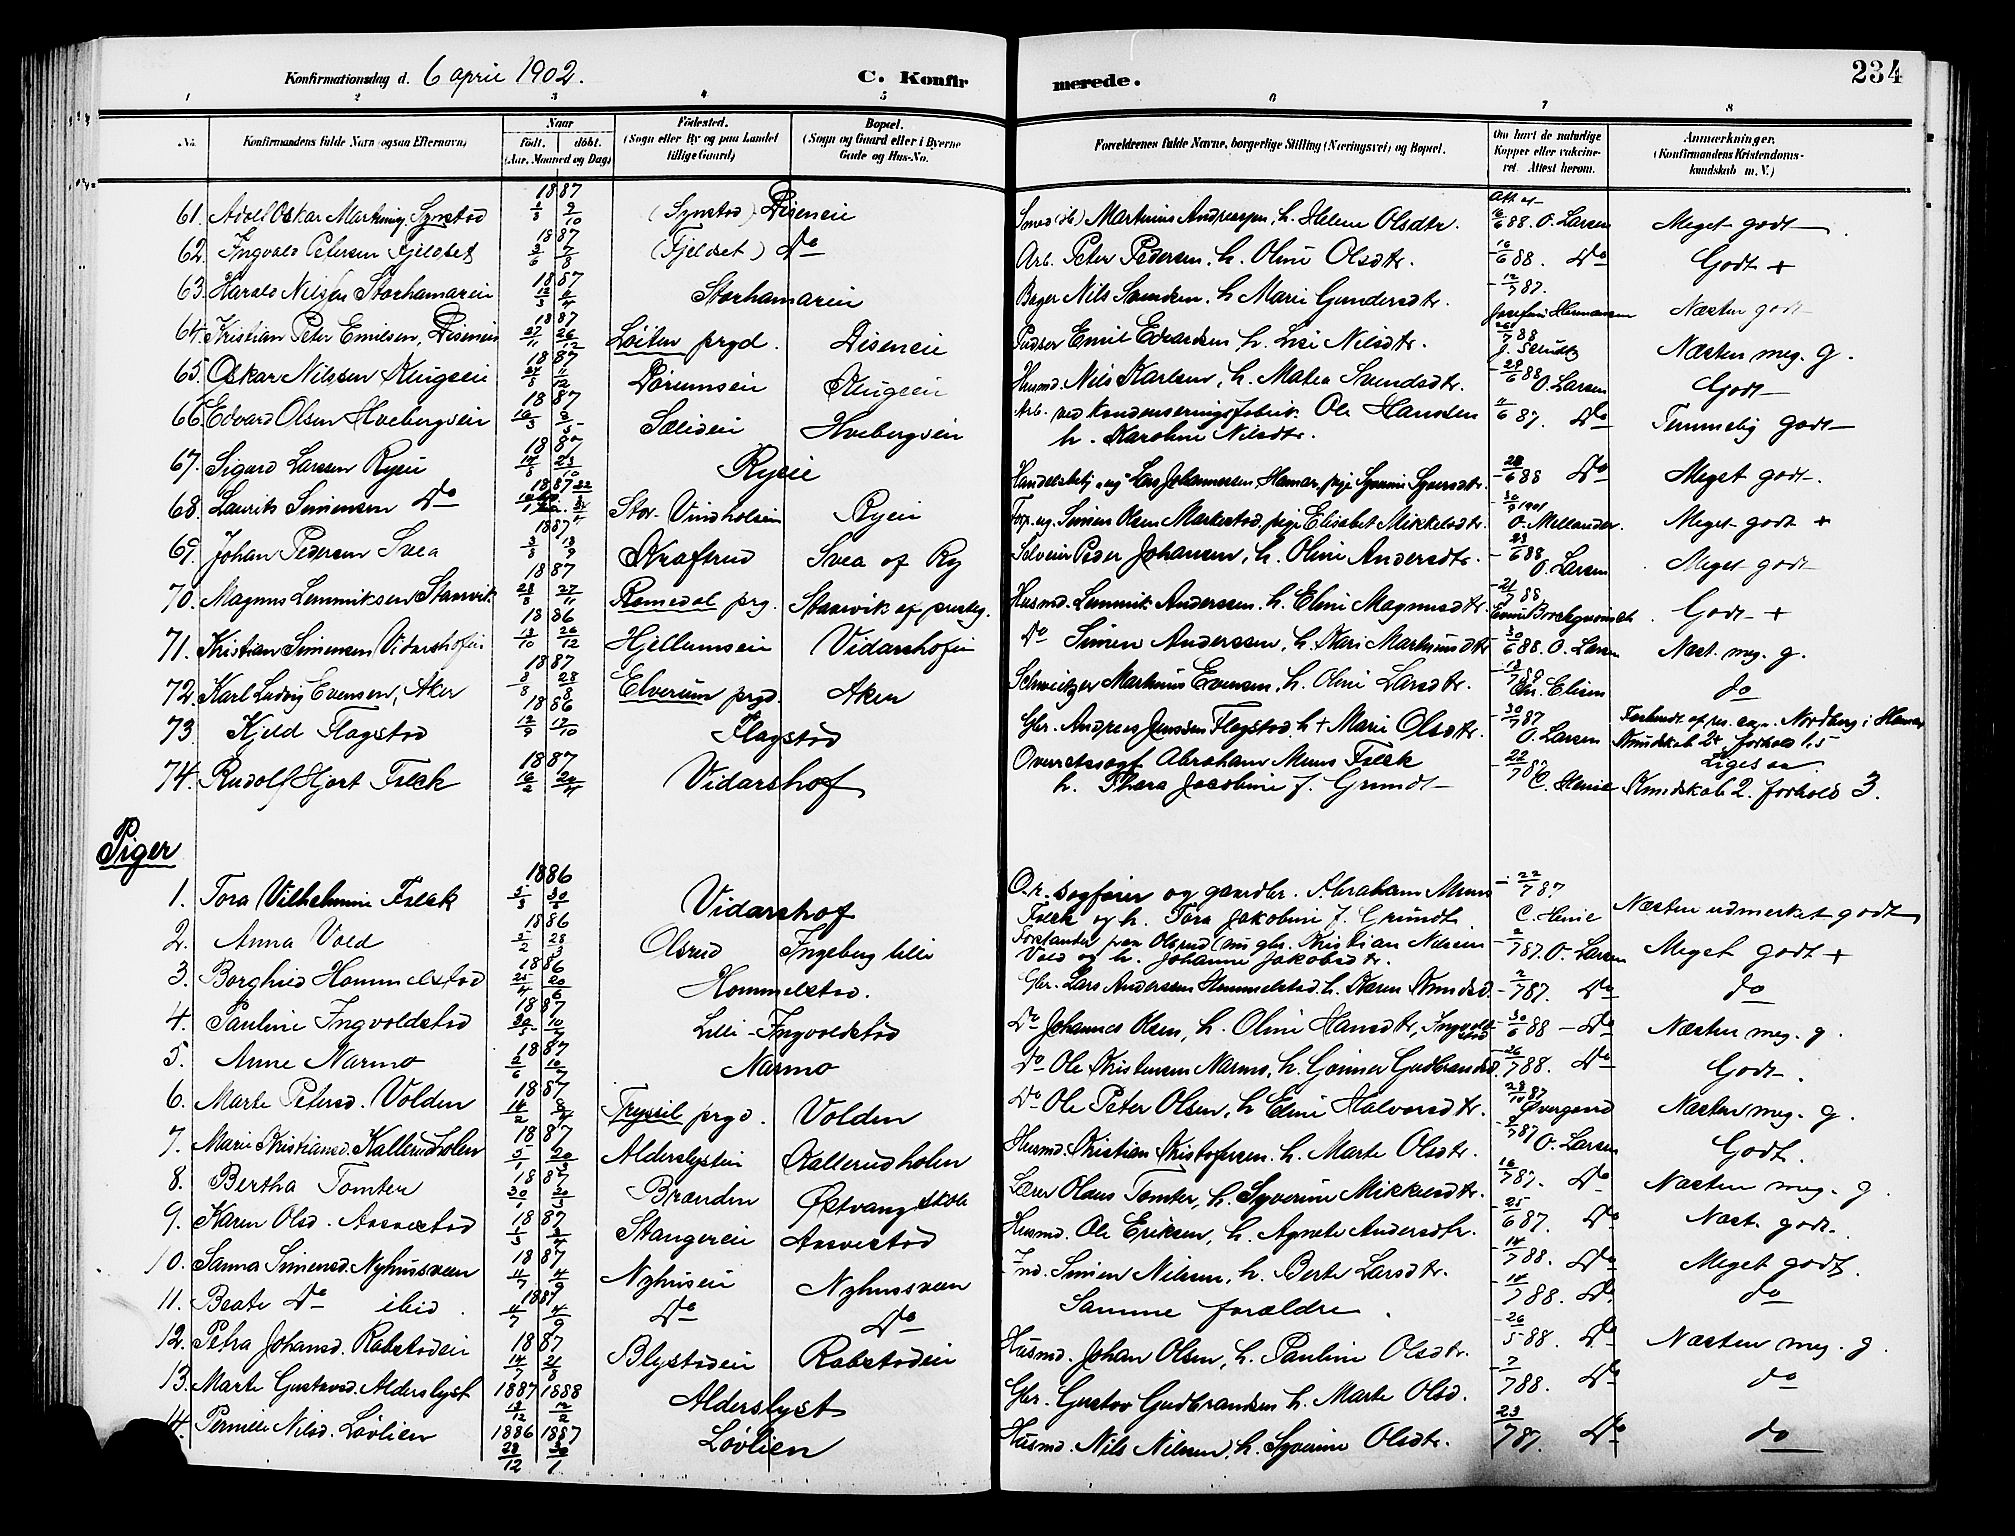 Konfirmationsdag d. 6 april 1902. C. Konfirmerede. 234
1 2 3 4 5 6 7 8
No. Konfirmandens fulde Navn (ogsaa Efternavn) Naar født. døbt. (Aar, Maaned og Dag) Fødested. (Sogn eller By og paa Landet tillige Gaard) Bopæl. (Sogn og Gaard eller i Byerne Gade og Hus-No. Forældrenes fulde Navne, borgerlige Stilling (Næringsvei) og Bopæl. Om havt de naturlige Kopper eller vaccineret. Attest herom. Anmærkninger. (Konfirmandens Kristendomskundskab m. V.)
61. Adolf Oskar Synstød 1887 (Synstød) Diseneie Martinius Andreassen, h. Helene Olsdtr. 16/6 88. O. Larsen Meget godt
62. Ingvald Petersen Fjeldset 1887 3/6 7/8 (Fjeldset) Do Arb. Peter Pedersen, h. Oline Olsdtr. 16/6 88. Do Godt +
63. Harald Nilsen Storhamareie 1887 Storhamareie Nils Svendsen, h. Marie Gundersdtr. 12/7 87. Josefine Hermansen Næsten godt
64. Kristian Peter Emilsen, Diseneie 1887 27/11 26/12 Løiten prgd. Diseneie Emil Edvardsen h. Lise Nilsdtr. 88 Næsten meg. g.
65. Oskar Nilssen Klugeeie 1887 Dørumseie Klugeeie Husmd. Nils Karlsen, h. Matea Svendsdtr. 29/6 88 O. Larsen Godt
66. Edvard Olsen Hvebergseie 1887 Sælideie Hvebergseie Arb. ved Kondenseringsfabrik. Ole Hansen h. Karoline Nilsdtr. 11/6 87. Do Temmelig godt
67. Sigurd Larsen Ryeie 1887 14/8 23/10 Ryeie Lars Johannessen, Hamar, pige Syverine Syversdtr. 28/6 88 Do Meget godt.
68. Laurits Simensen Do 1887 Stor-Vindholseie Ryeie Simen Olsen Markestad, pige Elisabet Mikkelsdtr. 30/9 1901 O. Mellander. Meget godt +
69. Johan Pedersen Svea 1887 3/8 18/9 Kraftrud Svea af Ry Selveier Peder Johansen, h. Oline Andersdtr. 23/6 88 O. Larsen Meget godt
70. Magnus Lemmiksen Staavik 1887 28/8 27/11 Romedal prg. Staavik af prestg. Husmd. Lemmik Anderssen. h. Eline Magnusdtr. 21/7 88 Godt +
71. Kristian Simensen Vidarshofeie 1886 13/10 26/12 Hjellumseie Vidarshofeie Do Simen Anderssen, h. Kari Martinusdtr 30/6 88. O. Larsen Næst. meg. g.
72. Karl Ludvig Evensen, Aker 1887 8/8 28/8 Elverum prgd. Aker Schweitzer Martinus Evensen, h. Oline Larsdtr. Chr. Elisen do
73. Kjeld Flagstad 1886 12/9 17/10 Flagstad Gbr. Andreas Jenssen Flagstad h + Marie Olsdtr. 30/7 87 O. Larsen Forberedt af res. cap. Nordberg i Hamar Kundskab 2+ forhold 1,5
74. Rudolf Hjort Fleck 1887 16/2 24/4 Vidarshof Overretssagf. Abraham Muus Fleck h. Thora Jacobine f. Grundt 22/7 87 C. Henie Ligesaa. Kundskab 2. forhold 3.
Piger
1. Tora Vilhelmine Fleck 1886 Vidarshof O.r.sagfører og gaardbr. Abraham Muus Fleck og h. Tora Jakobine f. Grundt. 22/7 87. C. Henie Næsten udmerket godt
2. Anna Vold 1886 5/2 28/3 Olsrud Ingeberg lille Forstander paa Olsrud (nu gbr. Kristian Nilsen Vold og h. Johanne Jakobsdtr. 2/7 87. O. Larsen Meget godt +
3. Borghild Hommelstad 1886 25/4 20/6 Hommelstad. Gbr. Lars Andersen Hommelstad. h. Karen Knudsd. 2/7 87. Do do
4. Pauline Ingvoldstad 1887 30/5 10/7 Lille-Ingvoldstad Do Johannes Olsen, h. Oline Hansdtr, Ingvoldstad 30/6 88 - Do Næsten meg. g.
5. Anne Narmo 1887 2/6 10/7 Narmo Do Ole Kristensen Narmo, h. Gunner Gudbrandsd. 26/7 88. Do Godt.
6. Marte Petersd. Volden 1887 14/2 Tryssil prgd. Volden Do Ole Peter Olsen, h Eline Halvorsdtr. 28/10 87 Øvergaard Næsten meg. g.
7. Marie Kristiansd. Kallerudholen 1887 5/1 20/3 Alderslysteie Kallerudholen Husmd. Kristian Kristofersen. h. Marte Olsdtr. 9/7 87 O. Larsen Godt.
8. Bertha Tomter 1887 Brænden Østvang skole Lærer Olaus Tomter, h. Syverine Mikkelsdtr. 16/7 87. Do Næsten meg. g.
9. Karen Olsd. Aasvestad 1887 Stangereie Aasvestad Husmd. Ole Eriksen, h. Agnete Andersdtr. 25/6 87. Do Næst. godt.
10. Sanna Simensd. Nyhusveen 1887 4/7 4/9 Nyhuseie Nyhusveen Ind. Simen Nilsen, h. Berte Larsdtr. 14/7 88. Do Meget godt.
11. Beate Do ibid. 1887 4/7 4/9 Do Do Samme forældre. 14/7 88. Do. do
12. Petra Johansd. Rabstadeie 1887 14/7 21/8 Blystadeie Rabstadeie Husmd. Johan Olsen, h. Pauline Olsdtr. 26/5 88. Do Næsten meg. g.
13. Marte Gustavsd. Alderslyst 1887 1888 13/12 12/2 Alderslyst Gbr. Gustav Gudbrandsen h. Marte Olsd. 7/7 88. Do do
14. Pernille Nilsd. Løvlien 1886 1887 28/12 30/1 Løvlien Husmd. Nils Nilsen, h. Syverine Olsdtr. 23/7 87. Do do